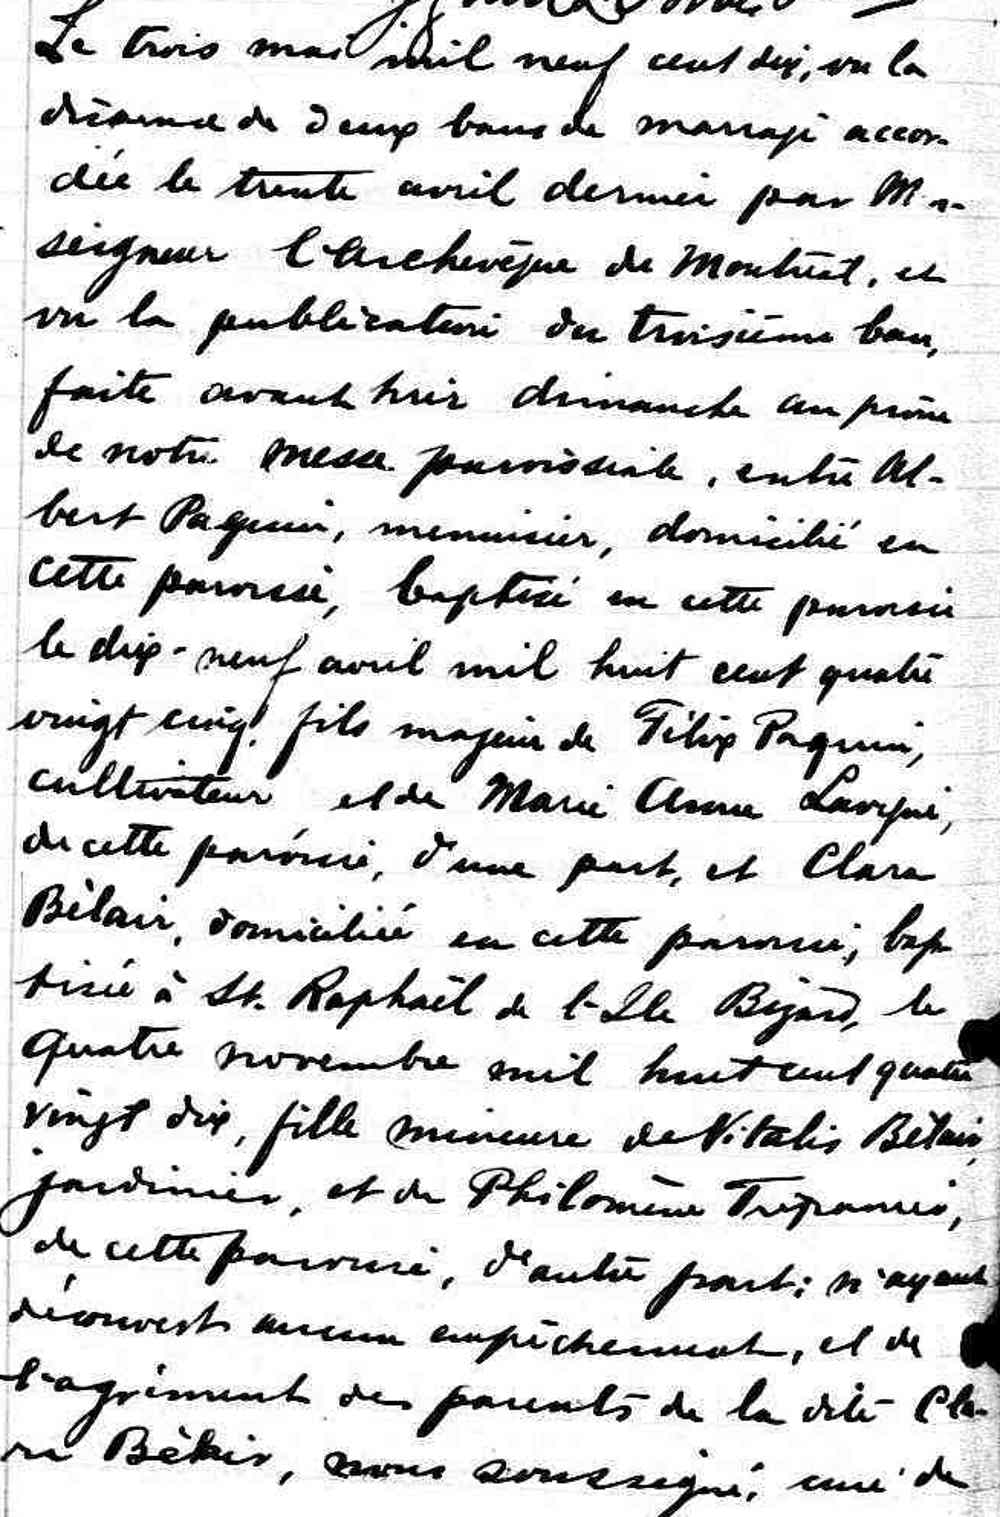 Le trois mai mil neuf cent dix, vu la
dispense de deux bans de mariage accor-
dée le trente avril dernier par Mon-
seigneur l'Archevêque de Montréal, et
vu la publication du troisième ban,
faite avant hier dimanche au prône
de notre messe paroissiale, entre Al-
bert Paquin, menuisier, domicilié en
cette paroisse, baptisé en cette paroisse
le dix-neuf avril mil huit cent quatre
vingt cinq, fils majeur de Félix Paquin,
cultivateur et de Marie Anne Lavigne,
de cette paroisse, d'une part, et Clara
Bélair, domiciliée en cette paroisse, bap
tisée à St. Raphaël de l'Ile Bizard, le
quatre novembre mil huit cent quatre
vingt dix, fille mineure de Vitalis Bélair,
jardinier, et de Philomène Trépanier,
de cette paroisse, d'autre part; n'ayant
découvert aucun empêchement, et de
l'agrément des parents de la dite Cla-
ra Bélair, nous soussigné, curé de